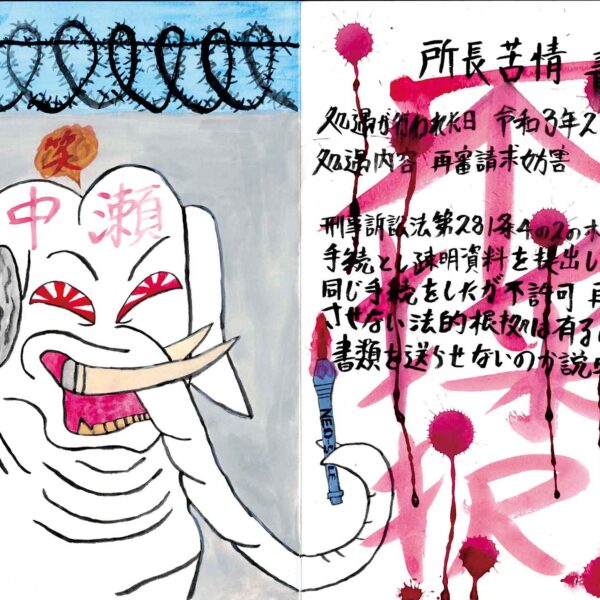 笑
中瀬
所長苦情
処遇が行われた日 令和3年2
処遇内容 再審請求妨害
刑事訴訟法第281条4の2の
手続とし疎明資料を提出し
同じ手続をしたが不許可 再
させない法的根拠は有る
書類を送らせないのか説
不採択
NEO-S